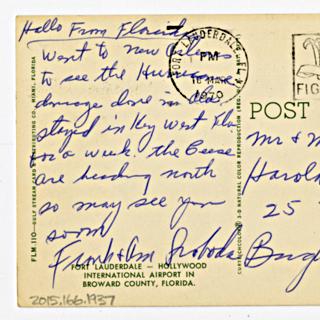 Hallo From Florida
Went to new Orleans
to see the Hurricane
damage done in
stayed in Key West Fla
for a week. the Geese
are heading north
so may see you
soon
Frank & Ann Svoboda
FORT LAUDERDALE — HOLLYWOOD
INTERNATIONAL AIRPORT IN
BROWARD COUNTY, FLORIDA.
2015.166.1937
FLM.110—GULF STREAM CARD & DISTRIBUTING CO. MIAMI, FLORIDA
FORT LAUDERDALE, FL
PM
16 MAR
1970
FIG
POST
Mr & M
Harol
25